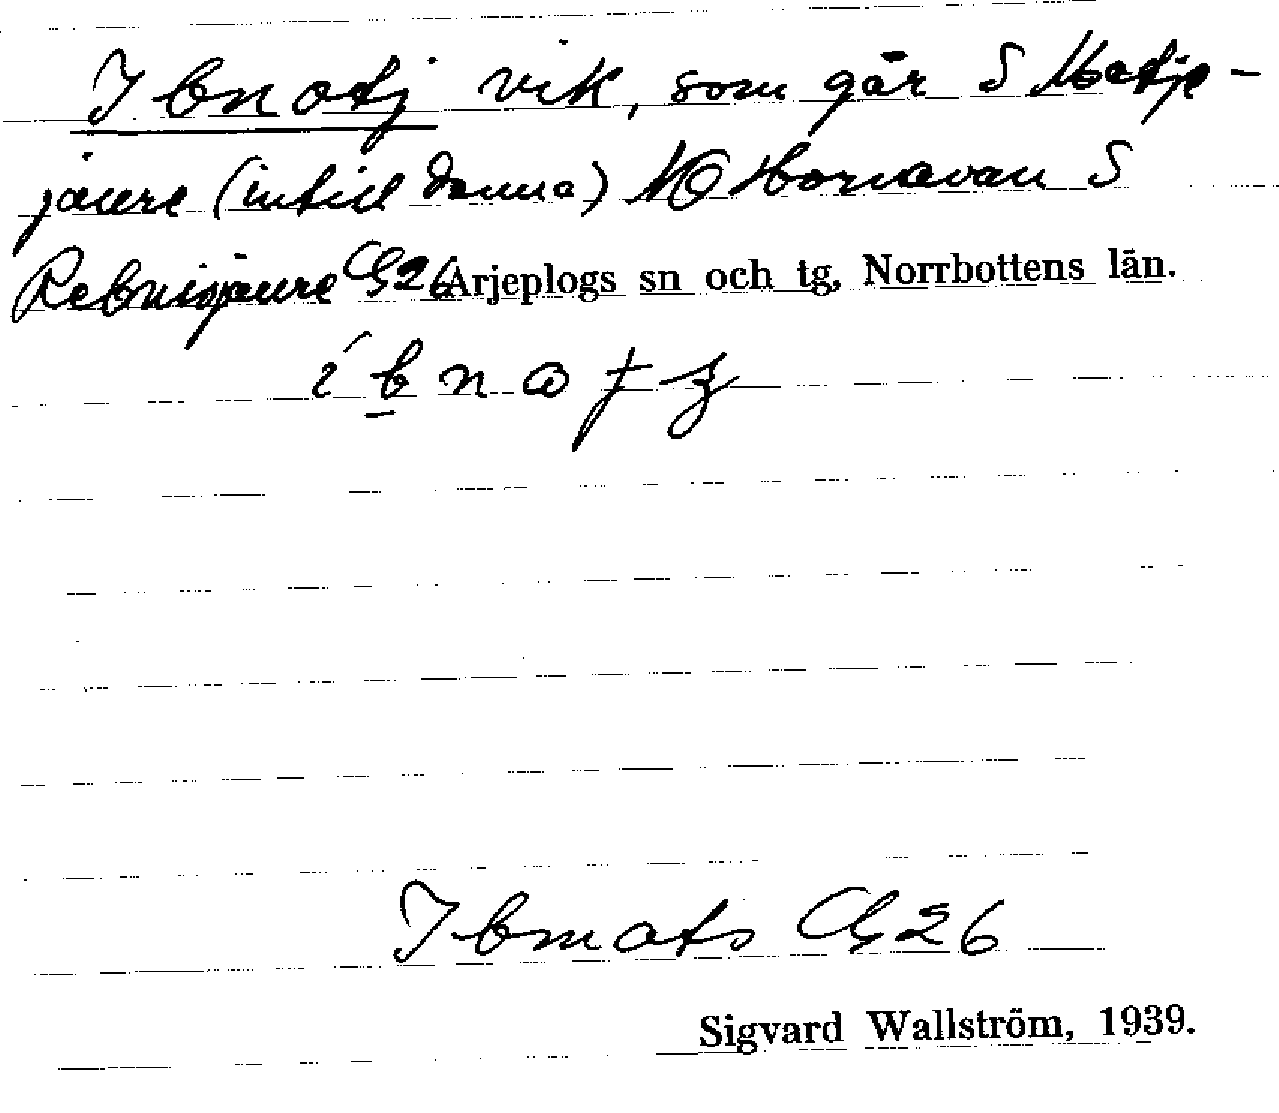 Ibnatj vik, som går S
jaure (intill denna) NO Hornavan S
Rebnisjaure CG26 Arjeplogs sn och tg, Norrbottens län.
Ibmats CG26
Sigvard Wallström, 1939.